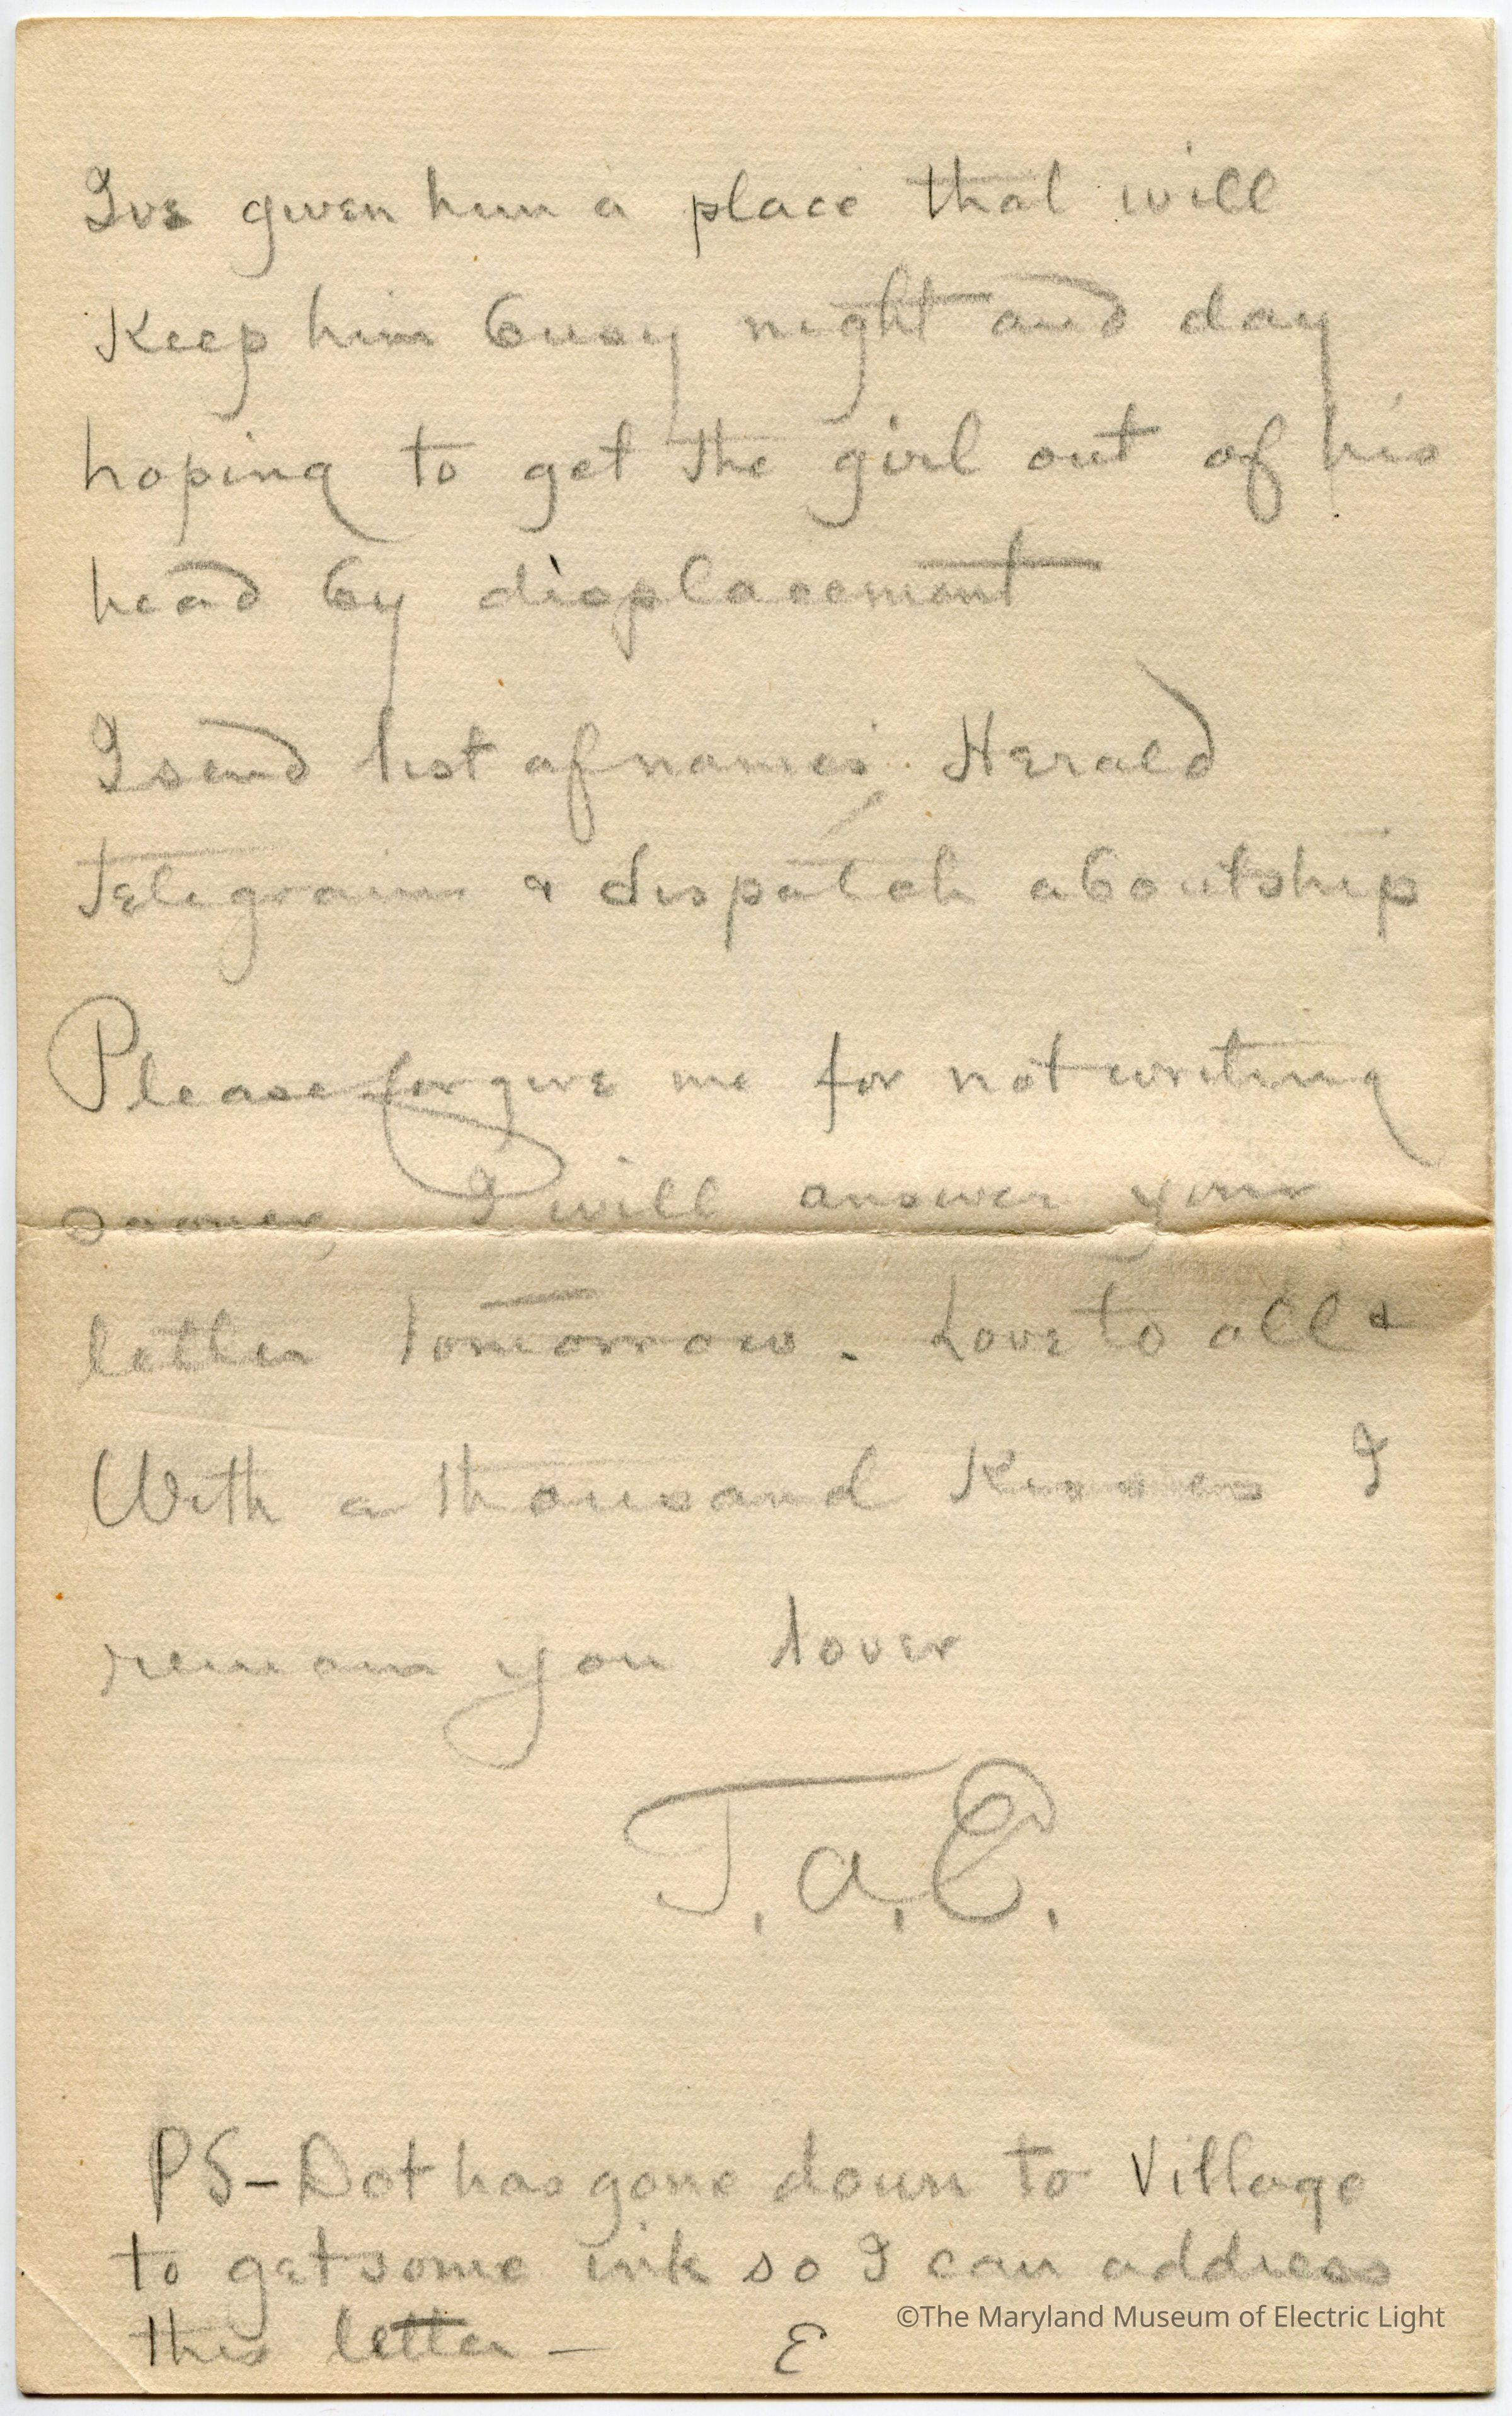 Ive given him a place that will
Keep him busy night and day
hoping to get the girl out of his
head by displacement
I send list of names. Herald
Telegram & dispatch about ship
Please forgive me for not writing
sooner, I will answer your
letter tomorrow. Love to all &
With a thousand Kisses I
remain you lover
T.A.E.
PS- Dot has gone down to Village
to get some ink so I can address
this letter - E
©The Maryland Museum of Electric Light